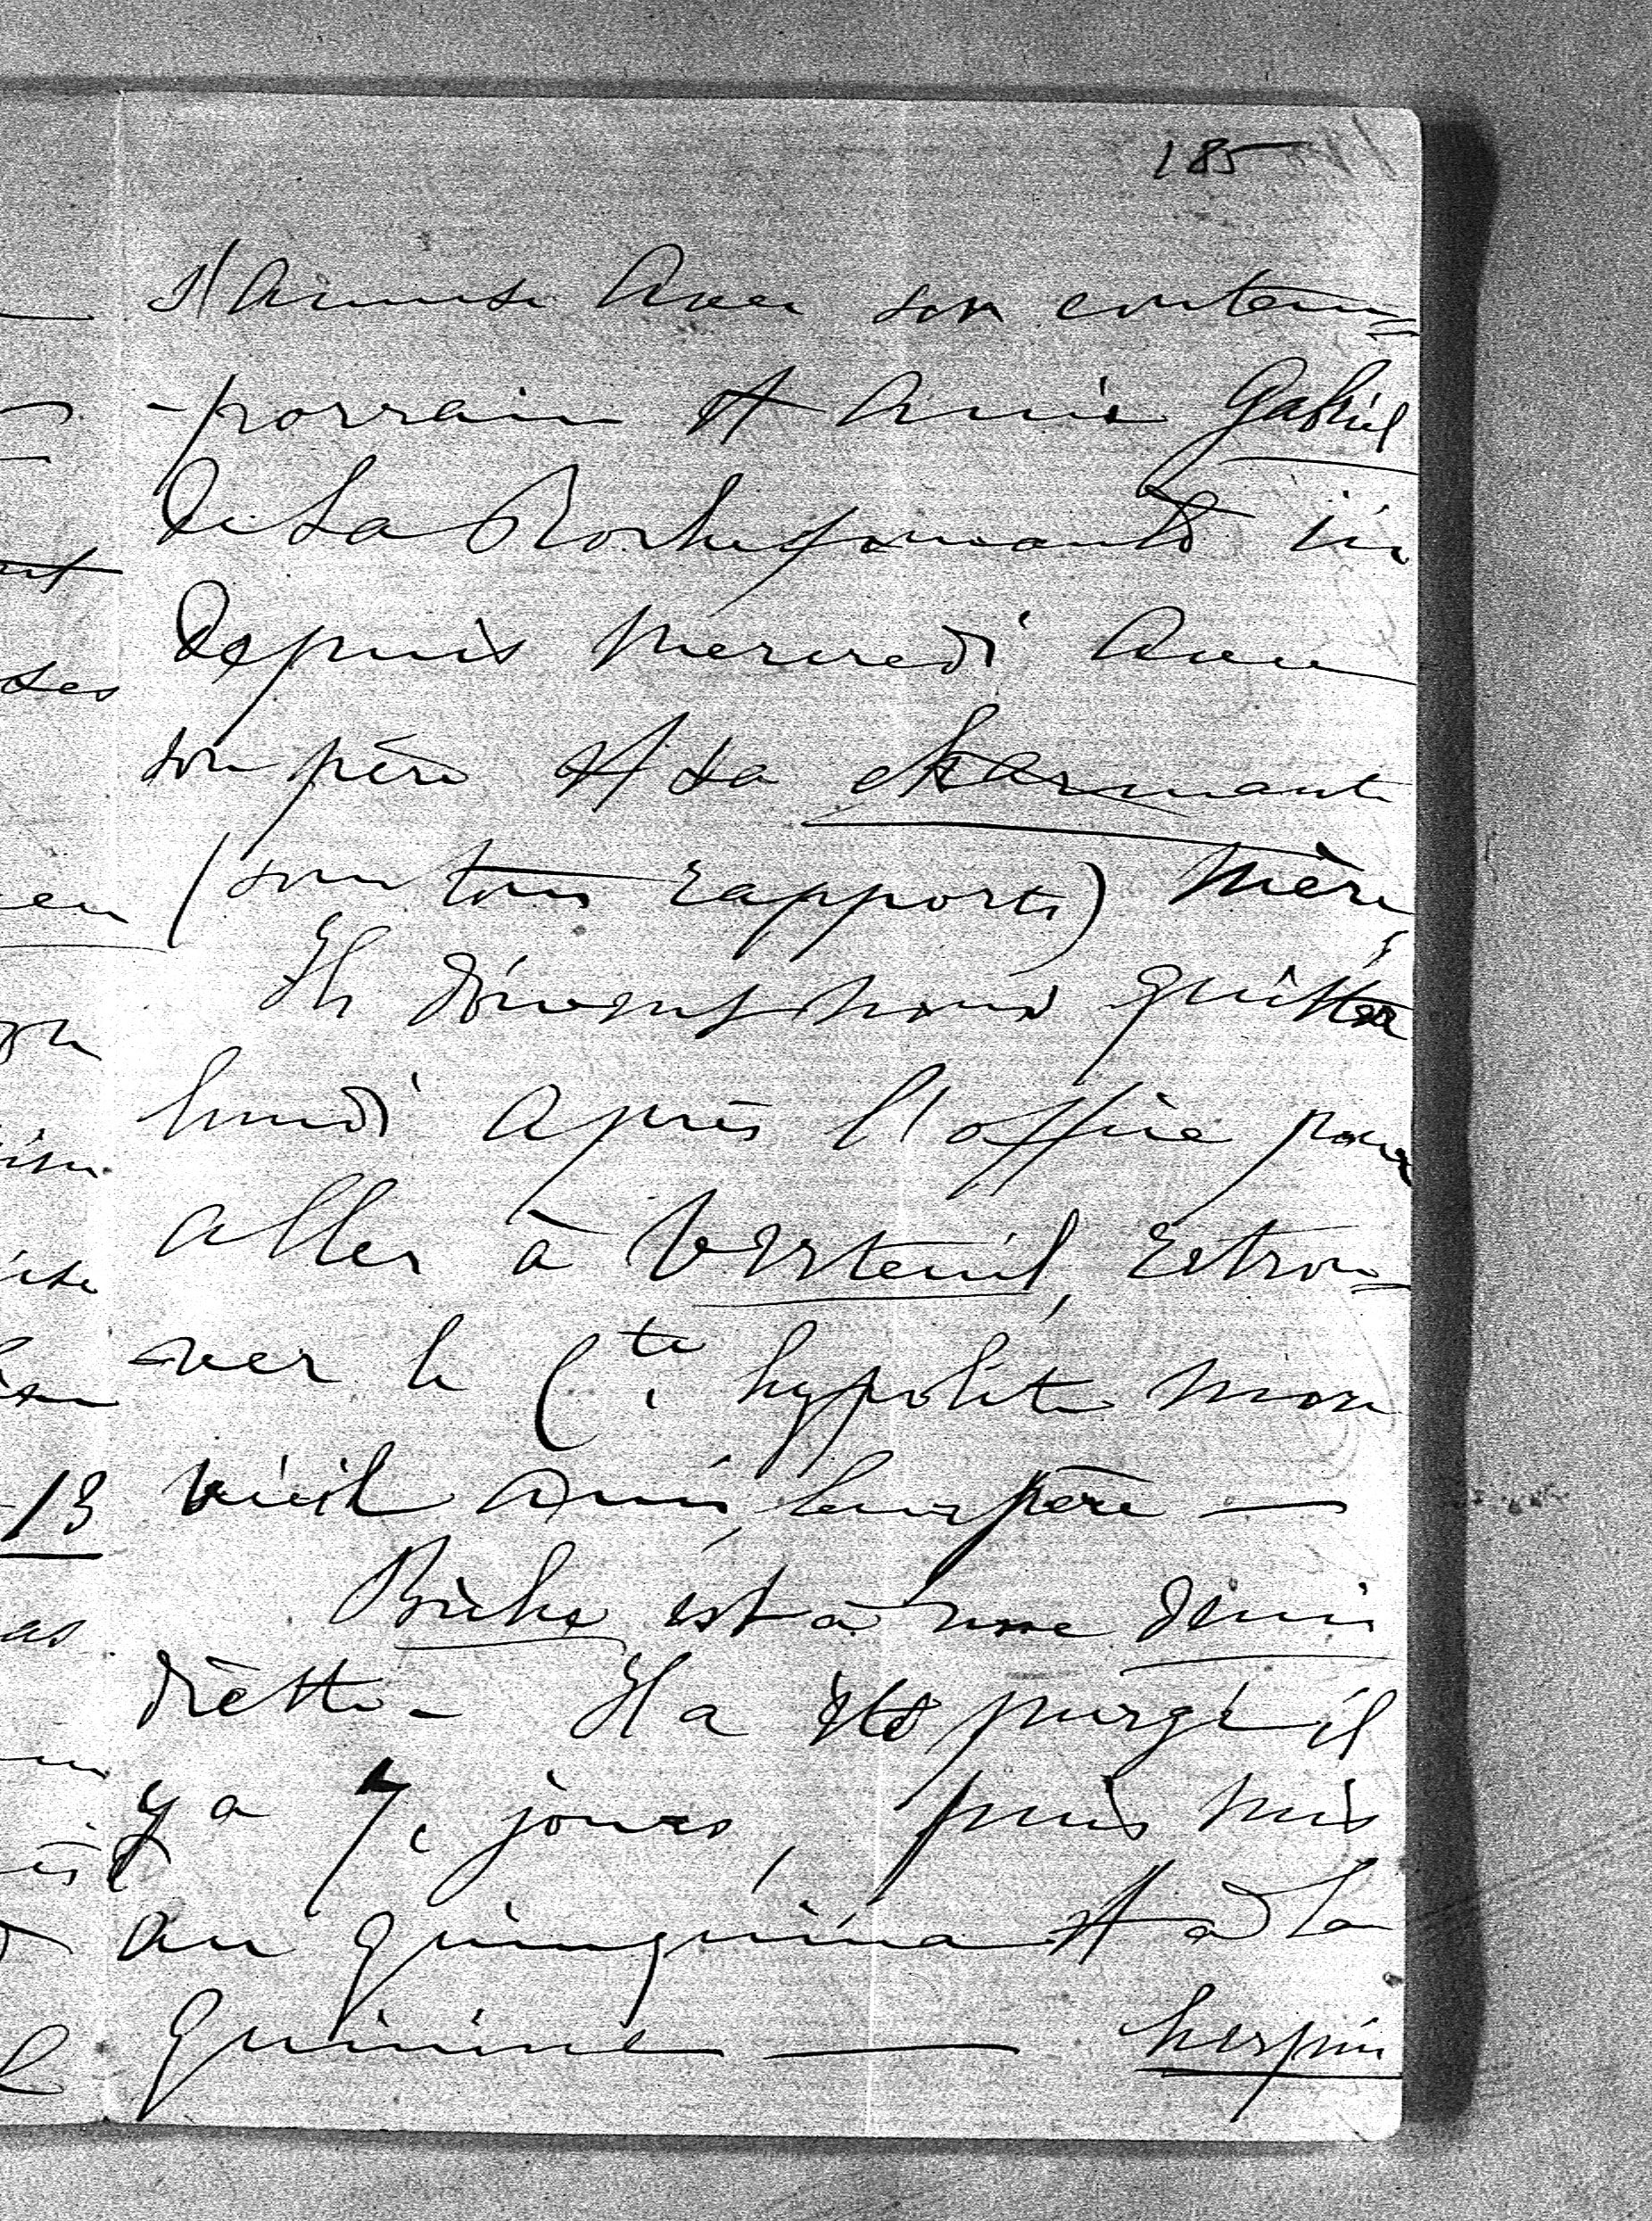 185
s'amuse avec son contem=
-porrain et ami Gabriel
de La Rochefoucauld ici
depuis mercredi avec
son père et sa charmante
(sous tous rapports) mère
Ils doivent nous quitter
lundi après l'office pour
aller à Verteuil, retrou=
ver le Cte hypolite mon
vieil ami, leur père —
Biche est à une demi
diètte - Il a été purgé il
y a 7 jours, puis mis
au quinquina et à la
quinine — herpin